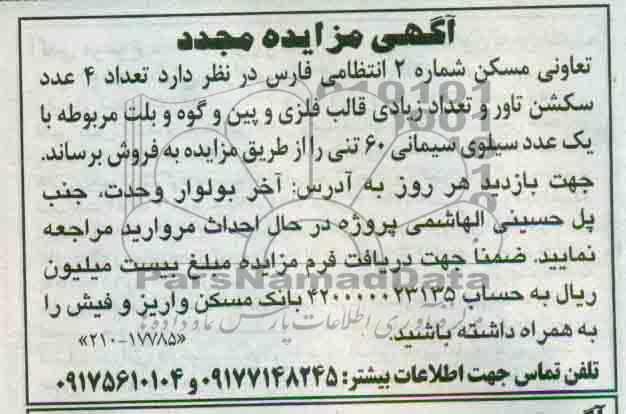 آگهی مزایده مجدد
تعاونی مسکن شماره ۲ انتظامی فارس در نظر دارد تعداد ۴ عدد
سکشن تاور و تعداد زیادی قالب فلزی و پین و گوه و بلت مربوطه با
یک عدد سیلوی سیمانی ۶۰ تنی را از طریق مزایده به فروش برساند.
جهت بازدید هر روز به آدرس: آخر بولوار وحدت، جنب
پل حسینی الهاشمی پروژه در حال احداث مروارید مراجعه
نمایید. ضمناً جهت دریافت فرم مزایده مبلغ بیست میلیون
ParsNamadData
ریال به حساب ۴۲۰۰۰۰۰۲۳۱۳۵ بانک مسکن واریز و فیش را
به همراه داشته باشید.
«۲۱۰-۱۷۷۸۵»
تلفن تماس جهت اطلاعات بیشتر: ۰۹۱۷۷۱۴۸۲۴۵ و ۰۹۱۷۵۶۱۰۱۰۴